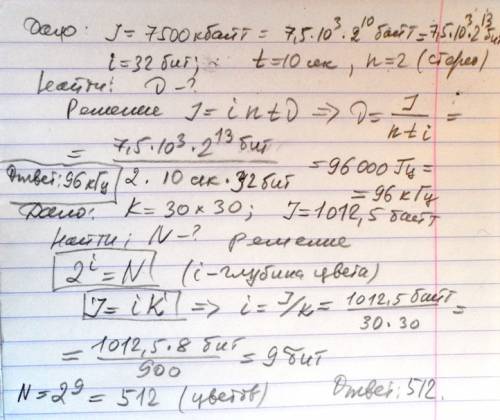 Дано: J = 7500 кбайт = 7,5·10³·2¹⁰ байт = 7,5·10³·2¹³ бит
i = 32 бит; t = 10 сек, n = 2 (стерео)
Найти: D - ?
Решение J = i n t D => D = J / n t i =
= 7,5·10³·2¹³ бит / 2·10 сек·32 бит = 96000 Гц =
= 96 кГц
Ответ: 96 кГц
Дано: K = 30 × 30; J = 1012,5 байт
Найти: N - ? Решение
2ⁱ = N (i - глубина цвета)
J = i K => i = J/K = 1012,5 байт / 30·30 =
= 1012,5·8 бит / 900 = 9 бит
N = 2⁹ = 512 (цветов) Ответ: 512.